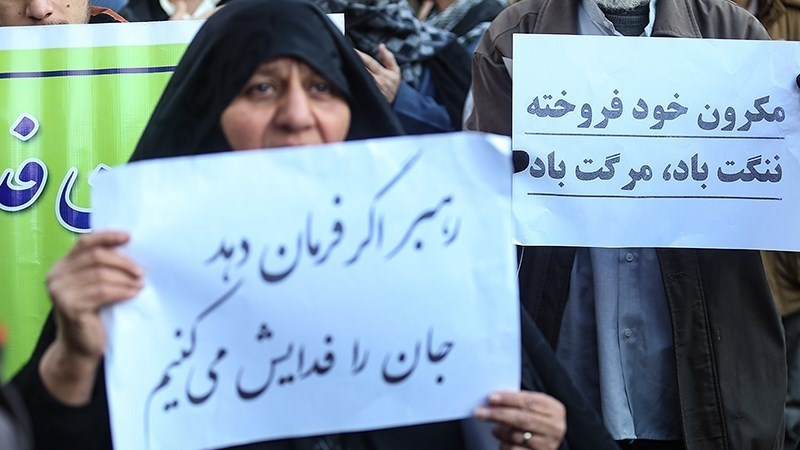 رهبر اگر فرمان دهد
جان را فدایش می کنیم
مکرون خود فروخته
ننگت باد، مرگت باد